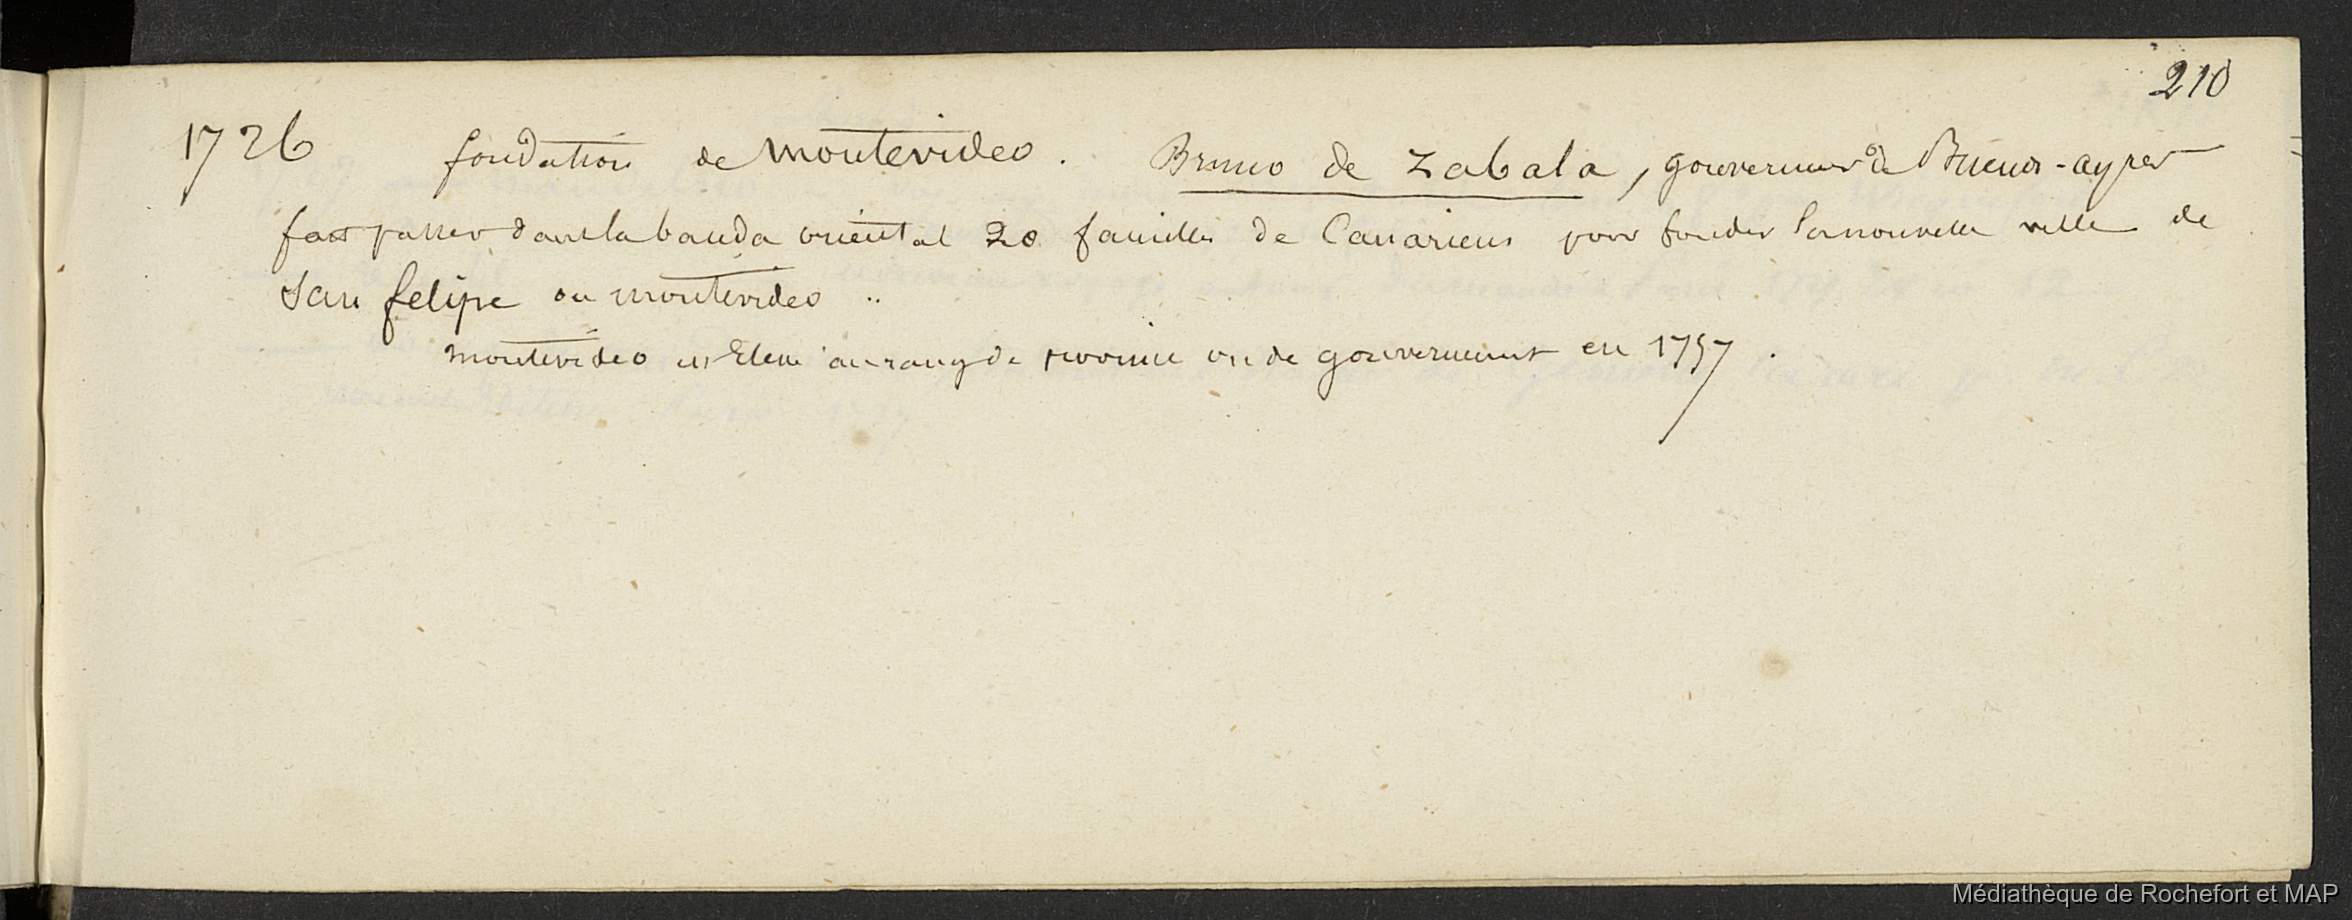 210
1726 fondation de Montevideo. Bruno de Zabala, gouverneur de Buenos-ayres
fait passer dans la banda oriental 20 familles de Canariens pour fonder la nouvelle ville de
San felipe ou montevideo ..
montevideo est Eleve au rang de province ou de gouvernement en 1757.
Médiathèque de Rochefort et MAP